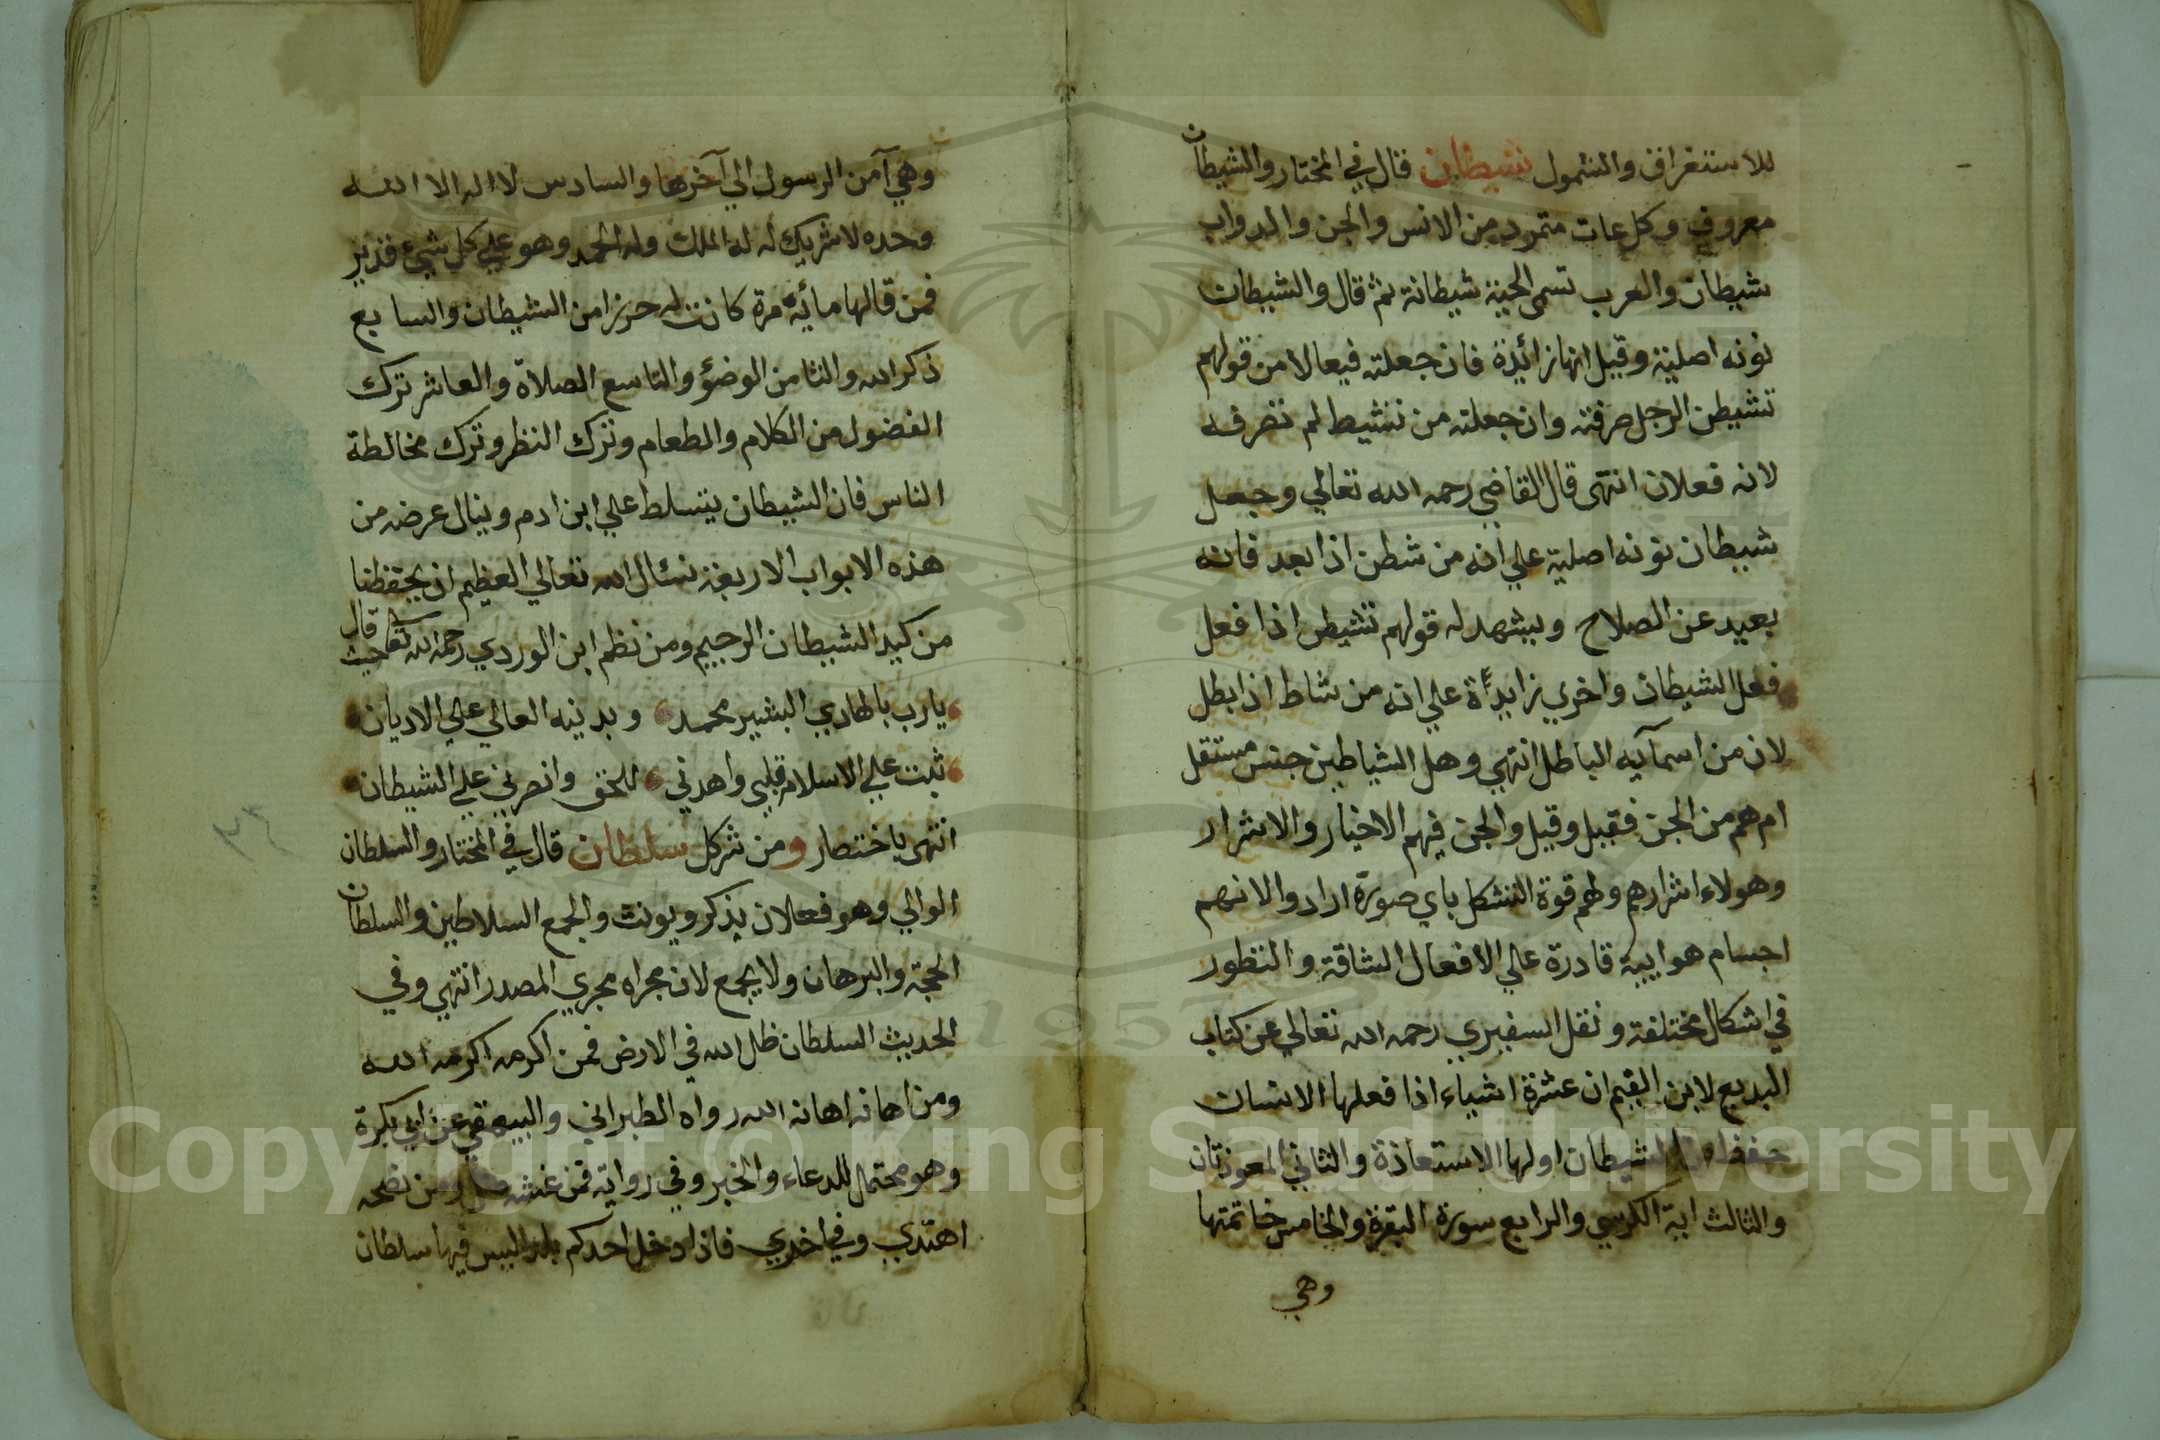 للاستغراق والشمول شيطان قال في المختار والشيطان
معروف وكل عات متمرد من الانس والجن والدواب
شيطان والعرب تسمى الحية شيطانة ثم قال والشيطان
نونه اصلية وقيل انها زائدة فان جعلته فيعالا من قولهم
تشيطن الرجل صرفته وان جعلته من تشيط لم تصرفه
لانه فعلان انتهى قال القاضي رحمه الله تعالي وجعل
شيطان نونه اصلية علي انه من شطن اذا بعد فانه
بعيد عن الصلاح ويشهد له قولهم تشيطن اذا فعل
فعل الشيطان واخري زايدة علي انه من شاط اذا بطل
لان من اسمآيه الباطل انتهي وهل الشياطين جنس مستقل
ام هم من الجن فقيل وقيل والجن فيهم الاخيار والاشرار
وهولاء اشرارهم ولهم قوة التشكل باي صورة ارادوا لانهم
اجسام هوايية قادرة علي الافعال الشاقة والتطور
في اشكال مختلفة ونقل السفيري رحمه الله تعالي عن كتاب
البديع لابن القيم ان عشرة اشياء اذا فعلها الانسان
حفظ من الشيطان اولها الاستعاذة والثاني المعوذتان
والثالث اية الكرسي والرابع سورة البقرة والخامس خاتمتها
وهي
وهي آمن الرسول الي آخرها والسادس لا اله الا الله
وحده لا شريك له له الملك وله الحمد وهو علي كل شيء قدير
فمن قالها مائة مرة كانت له حرزا من الشيطان والسابع
ذكر الله والثامن الوضؤ والتاسع الصلاة والعاشر ترك
الفضول من الكلام والطعام وترك النظر وترك مخالطة
الناس فان الشيطان يتسلط علي ابن ادم وينال غرضه من
هذه الابواب الاربعة نسئال الله تعالي العظيم ان يحفظنا
من كيد الشيطان الرجيم ومن نظم ابن الوردي رحمه الله تعا حيث قال
يا رب بالهادي البشير محمد وبدينه العالي علي الاديان
ثبت علي الاسلام قلبي واهدني للحق وانصرني علي الشيطان
انتهى باختصار ومن شر كل سلطان قال في المختار والسلطان
الوالي وهو فعلان يذكر ويونث والجمع السلاطين والسلطان
الحجة والبرهان ولا يجمع لان مجراه مجري المصدر انتهي وفي
الحديث السلطان ظل الله في الارض فمن اكرمه اكرمه الله
ومن اهانه اهانه الله رواه الطبراني والبيهقي عن ابي بكرة
وهو محتمل للدعاء والخبر وفي رواية فمن غشه ضل ومن نصحه
اهتدي وفي اخري فاذا دخل احدكم بلدا ليس فيها سلطان
٣٤
1957
Copyright © King Saud University